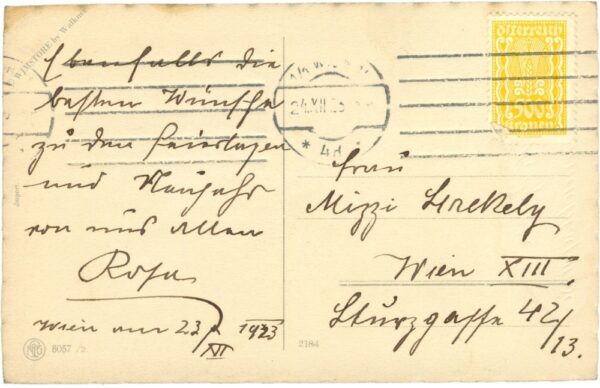 WIMSTORE by Walkov
Ebenfalls die
besten Wünsche
zu den Feiertagen
und Neujahr
von uns Allen
Rosa
Wien am 23/XII 1923
Frau
Mizzi Szekely
Wien XIII.
Sturzgasse 42/13.
24.XII.23
* 4d *
österreich
500
Kronen
Import.
6057 /2
2184